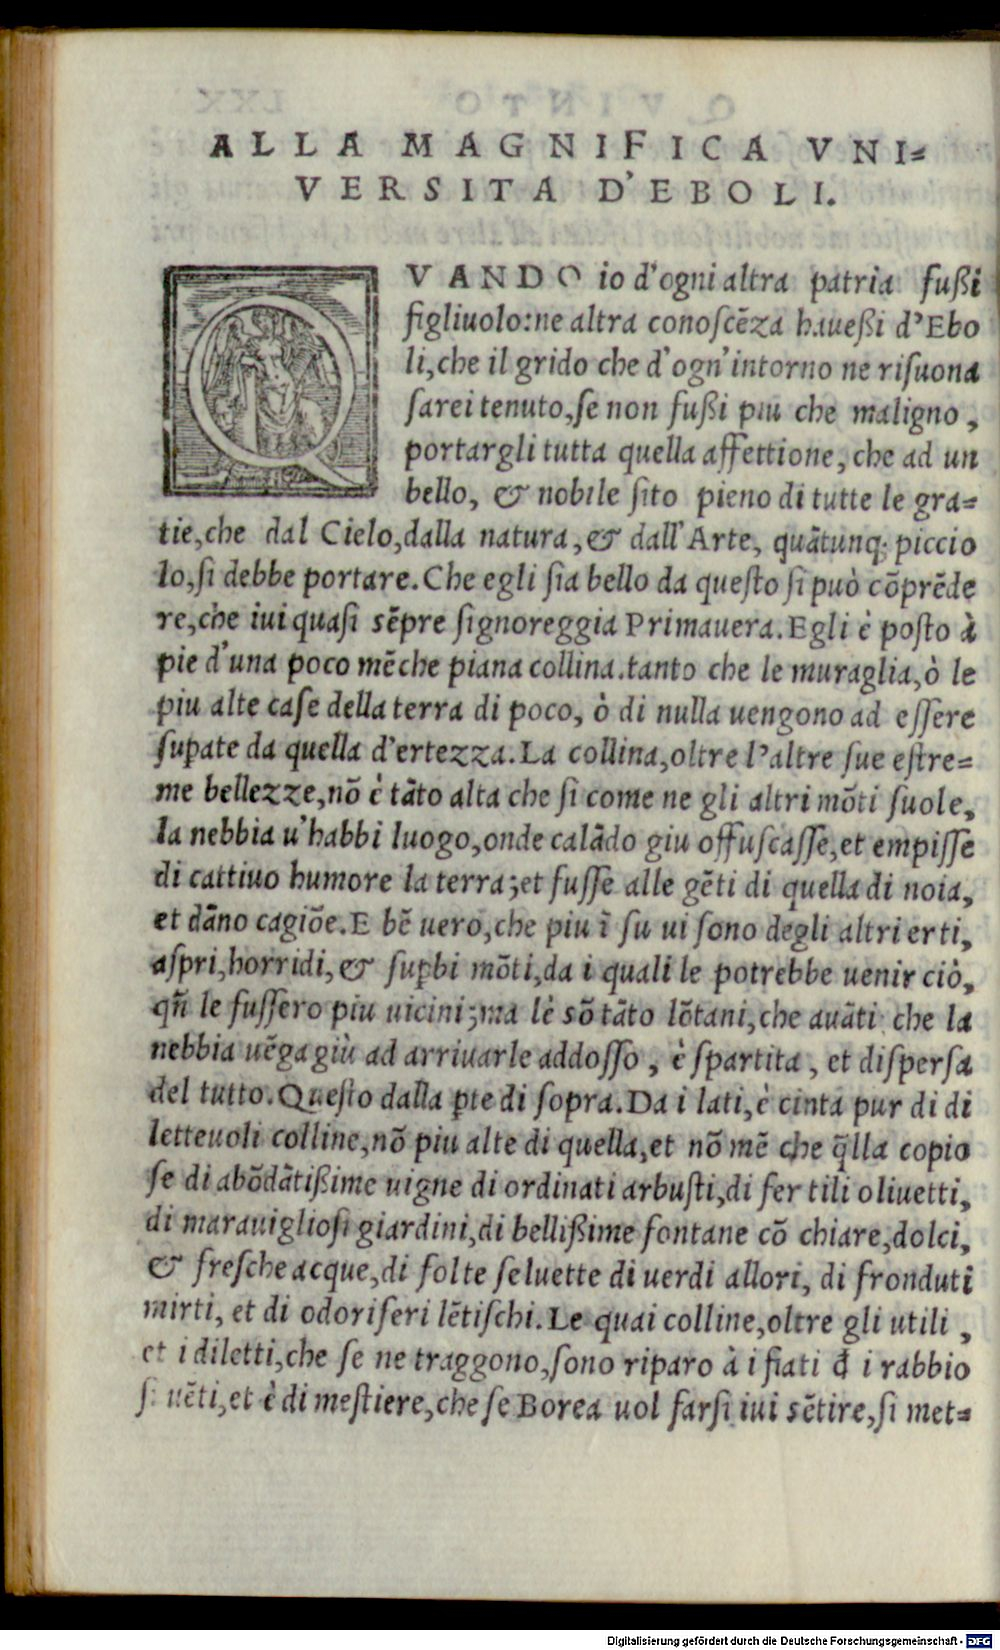 ALLA MAGNIFICA VNI=
VERSITA D'EBOLI.
QVANDO io d'ogni altra patria fußi
figliuolo: ne altra conoſcẽza haueßi d'Ebo
li, che il grido che d'ogn'intorno ne riſuona
ſarei tenuto, ſe non fußi piu che maligno,
portargli tutta quella affettione, che ad un
bello, & nobile ſito pieno di tutte le gra=
tie, che dal Cielo, dalla natura, & dall'Arte, quãtunq; piccio
lo, ſi debbe portare. Che egli ſia bello da queſto ſi può cõprẽde
re, che iui quaſi sẽpre ſignoreggia Primauera. Egli è poſto à
pie d'una poco mẽche piana collina. tanto che le muraglia, ò le
piu alte caſe della terra di poco, ò di nulla uengono ad eſſere
ſuꝑate da quella d'ertezza. La collina, oltre l'altre ſue eſtre=
me bellezze, nõ è tãto alta che ſi come ne gli altri mõti ſuole,
la nebbia u'habbi luogo, onde calãdo giu offuſcaſſe, et empiſſe
di cattiuo humore la terra; et fuſſe alle gẽti di quella di noia,
et dãno cagiõe. E bẽ uero, che piu ĩ ſu ui ſono degli altri erti,
aſpri, horridi, & ſuꝑbi mõti, da i quali le potrebbe uenir ciò,
qñ le fuſſero piu uicini; ma lè sõ tãto lõtani, che auãti che la
nebbia uẽga giù ad arriuarle addoſſo, è ſpartita, et diſperſa
del tutto. Queſto dalla ꝑte di ſopra. Da i lati, è cinta pur di di
letteuoli colline, nõ piu alte di quella, et nõ mẽ che q̃lla copio
ſe di abõdãtißime uigne di ordinati arbuſti, di fer tili oliuetti,
di marauiglioſi giardini, di bellißime fontane cõ chiare, dolci,
& freſche acque, di folte ſeluette di uerdi allori, di fronduti
mirti, et di odoriferi lẽtiſchi. Le quai colline, oltre gli utili,
et i diletti, che ſe ne traggono, ſono riparo à i fiati đ i rabbio
ſi uẽti, et è di meſtiere, che ſe Borea uol farſi iui sẽtire, ſi met=
Digitalisierung gefördert durch die Deutsche Forschungsgemeinschaft - DFG